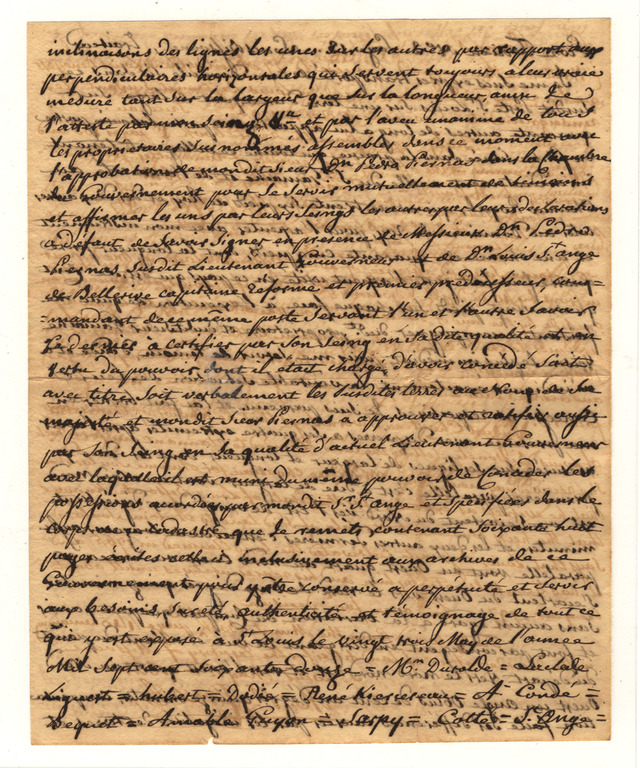 inclinaisons des lignes les unes sur les autres par rapport aux
perpendiculaires horizontales qui servent toujours a leur vraie
mesure tant sur la largeur que sur la longueur, ainsi Je
l'atteste par mon seing, et par l'aveu unanime de tous
les proprietaires susnommés assemblés dans ce moment avec
l'approbation de mondit Sieur Dn Pedro Piernas dans la Chambre
de Gouvernement pour se servir mutuellement de témoins
et affirmer les uns par leurs seings les autres par leurs déclarations
a défaut de savoir signer en presence de Messieurs Dn Pedro
Piernas, susdit Lieutenant Gouverneur et de Dn Louis St ange
de Bellerive capitaine reformé et premier prédécesseur, com=
=mandant de ce même poste servant l'un et l'autre savoir
Le dernier a certifier par son seing en sa dite qualité et en
vertu du pouvoir dont il etait chargé, d'avoir concédé soit
avec titre soit verbalement les susdites terres au Nom de Sa
majesté et mondit Sieur Piernas a approuver et ratifier aussi
par son seing en sa qualité d'actuel Lieutenant Gouverneur
avec laquelle il est muni du même pouvoir de Conceder les
possessions accordées par mondit Sr St ange et specifiées dans le
corps de ce cadastre que je remets contenant soixante huit
pages écrites celle ci inclusivement aux archives de ce
Gouvernement pour y etre conservé a perpétuité et servir
aux besoins, sureté authenticité et témoignage de tout ce
qui y est exposé à St Louis le vingt trois May de l'année
Mil Sept cent soixante douze = Mn Duralde = Laclede
Liguest = hubert = Dodie = René Kiersereau = A. Conde =
Bequet = Amable Guyon = Sarpy = Cotté = St Ange =